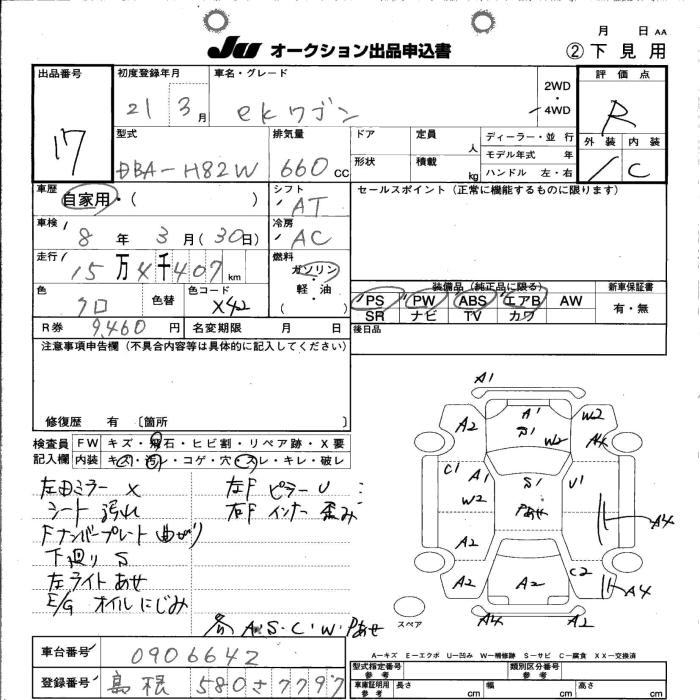 月 日 AA
JU オークション出品申込書 ②下見用
出品番号 初度登録年月 車名・グレード 評価点
17 21 3月 ekワゴン 2WD ・ 4WD R
外装 内装
/ C
型式 排気量 ドア 定員 人 ディーラー・並行
DBA-H82W 660cc 形状 積載 kg モデル年式 年
ハンドル 左・右
車歴 シフト セールスポイント(正常に機能するものに限ります)
自家用・( ) AT
車検 冷房
8年 3月(30日) AC
走行 燃料
15万4千407km ガソリン・軽油 ( )
色 色替 色コード 装備品(純正品に限る) 新車保証書
クロ X42 PS PW ABS エアB AW 有・無
SR ナビ TV カワ
R券 9,460円 名変期限 月 日 後日品
注意事項申告欄(不具合内容等は具体的に記入してください)
修復歴 有〔箇所 〕
検査員 FW キズ・飛石・ヒビ割・リペア跡・X要
記入欄 内装 キズ・汚レ・コゲ・穴・スレ・キレ・破レ
左ドミラー X 左F ピラー U
シート 汚れ 右F インナー 歪み
Fナンバープレート 曲がり
下廻り S
左ライト あせ
E/G オイルにじみ
A・S・C・W・Pあせ
A1
A2 A1 S1 W2 W2 A4
C1 A1 W2 S1 Pあせ U1 A4
A2 A2 A2 C2 A4
A4 A2
スペア
A-キズ E-エクボ U-凹み W-補修跡 S-サビ C-腐食 XX-交換済
車台番号 0906642 型式指定番号 参考 類別区分番号 参考
登録番号 島根 580さ7797 車庫証明用 参考 長さ cm 幅 cm 高さ cm